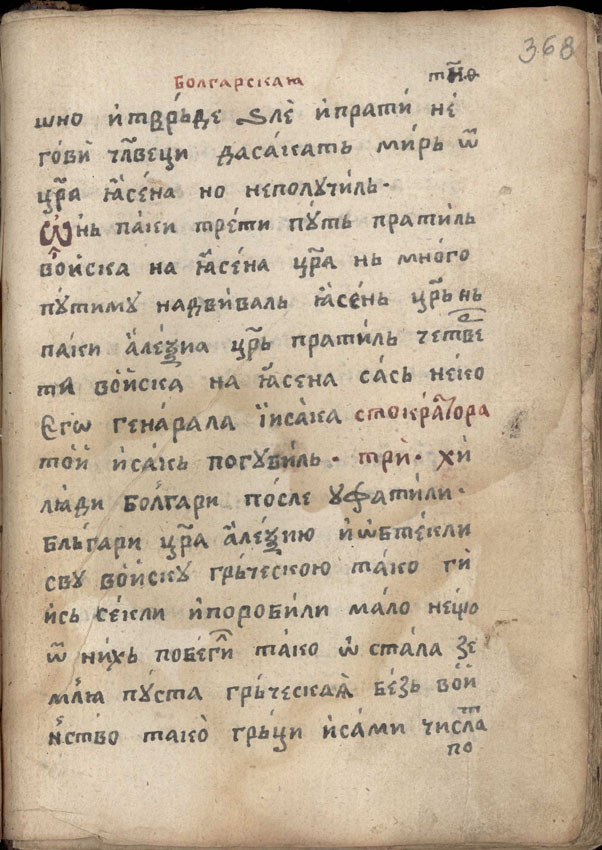 368
болгарскаꙗ тн҃ѳ
шно и҆твръ́де ѕлѐ и҆прати́ не́
гови̏ чл҃веци дасакать ми́рь ѿ
цр҃а и҆а҆се́на но неполучиль·
Ѡ҆нь па́ки тре́ти пу́ть пратиль
во̑йска на и҆а҆се́на цр҃а нь мно́го
путиму надви́валь и҆а҆се́нь цр҃ь нь
паки а҆ле́ѯиа цр҃ь пратиль четве
ти воⷤйска на и҆а҆сена са́сь не́ко
его генара́ла и҆иса́ка стокра́тора
тои̑ и҆са́кь погуби́ль· три̏· хи́
лꙗди болгари по́сле уфати́ли·
бльгари цр҃а а҆ле́ѯию и҆ѡ҆бте́кли
сву во́йску гръ́ческою тако ги̏
и҆сь се́кли и҆поробили ма́ло не́що
ѿ ни́хь побе́ги тако ѡ҆ста́ла зе
млꙗ̀ пу́ста гръ́ческаꙗ бе́зь вои̑
нство тако̀ гръ́ци и҆са́ми числⷮа
по